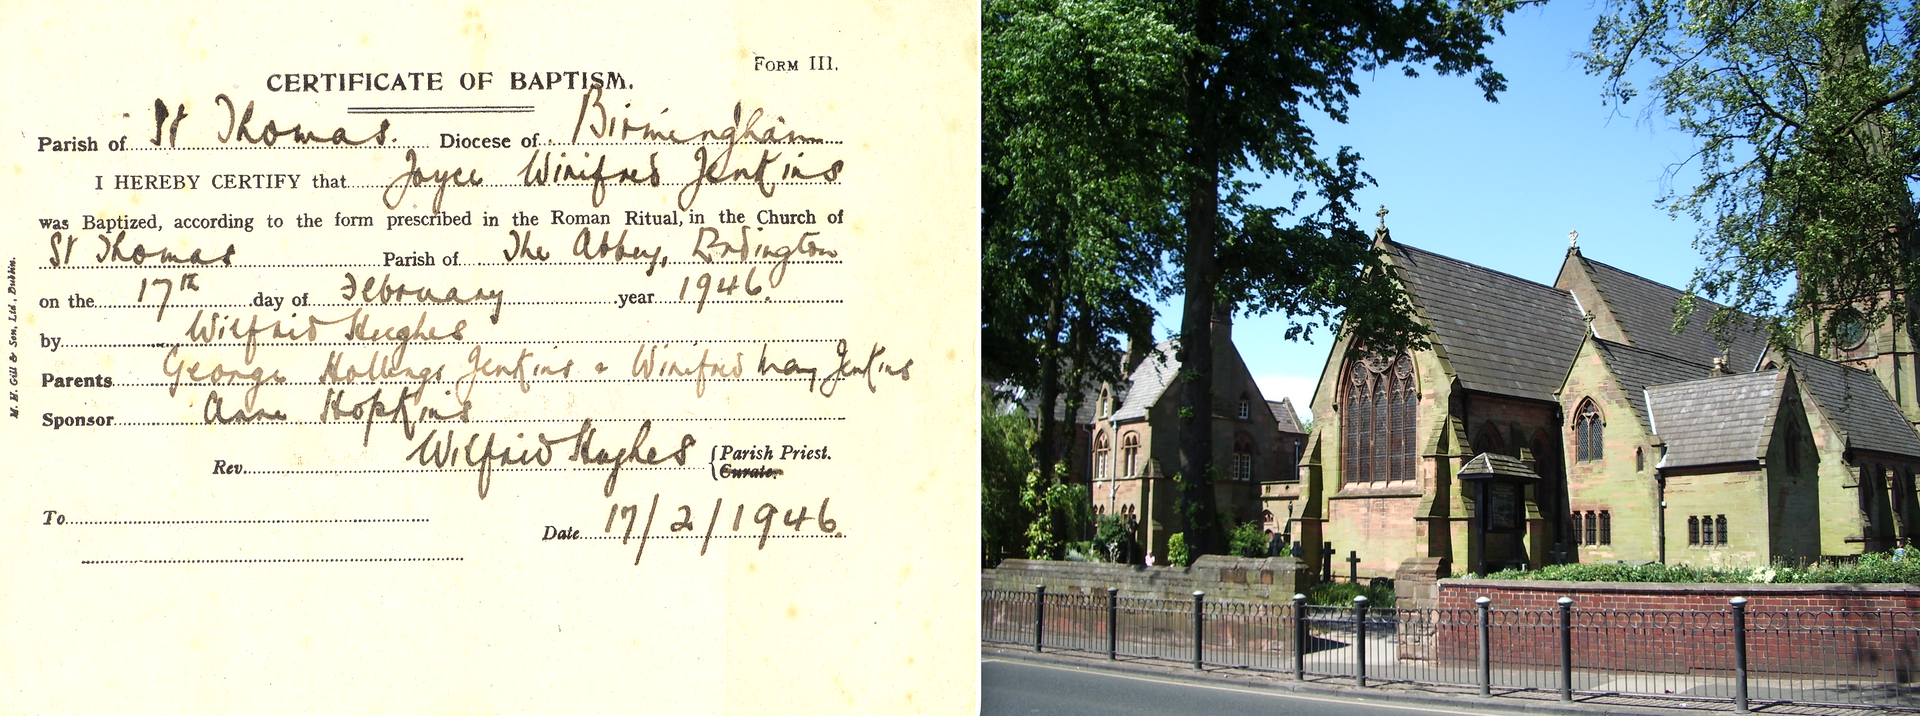 Form III.
CERTIFICATE OF BAPTISM.
Parish of St Thomas. Diocese of Birmingham
I HEREBY CERTIFY that Joyce Winifred Jenkins
was Baptized, according to the form prescribed in the Roman Ritual, in the Church of
St Thomas Parish of The Abbey, Erdington
on the 17th day of February year 1946.
by Wilfrid Hughes
Parents George Hollings Jenkins & Winifred May Jenkins
Sponsor Anne Hopkins
Rev. Wilfrid Hughes {Parish Priest.
Curate.
To
Date 17/2/1946.
M. H. Gill & Son, Ltd., Dublin.